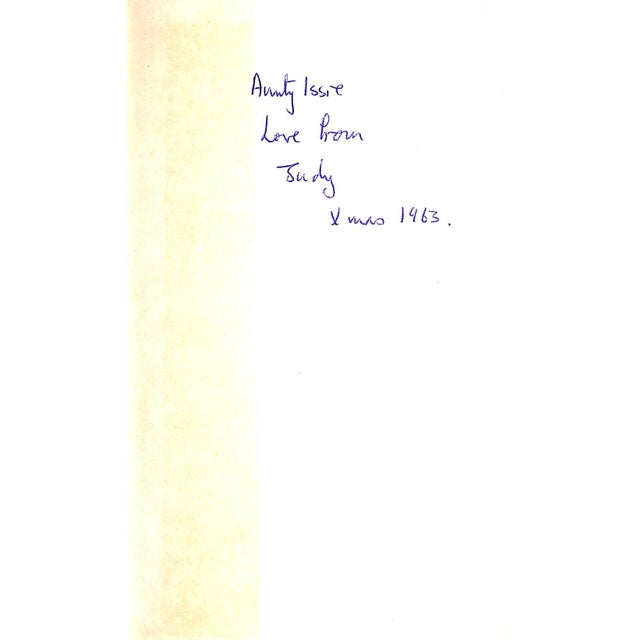 Aunty Issie
Love from
Judy
Xmas 1963.